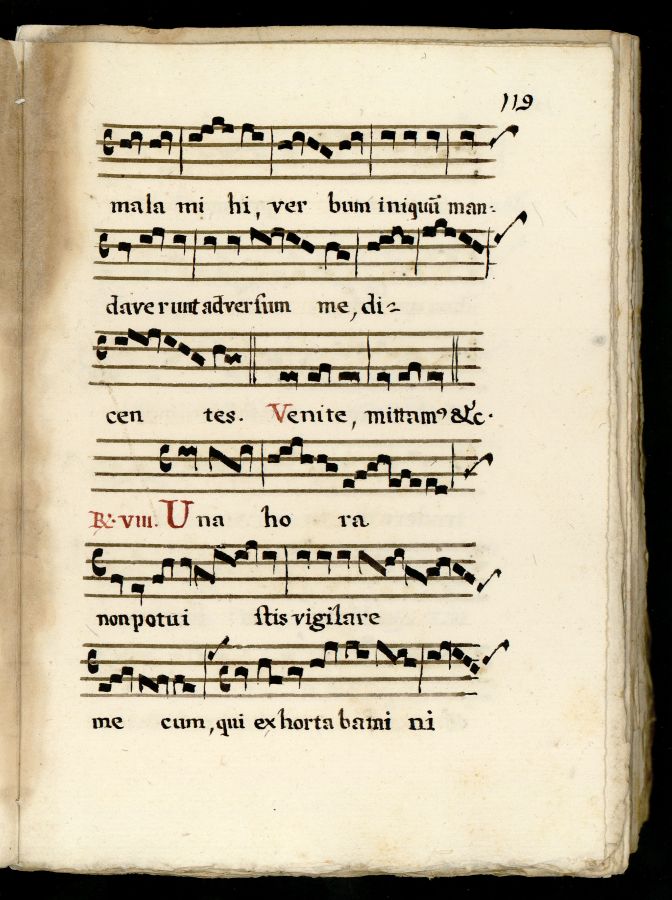 119
mala mi hi, ver bum iniquũ man-
daverunt adversum me, di-
cen tes. Venite, mittamꝰ &c.
℟. viii. Una ho ra
non potui stis vigilare
me cum, qui exhorta bami ni